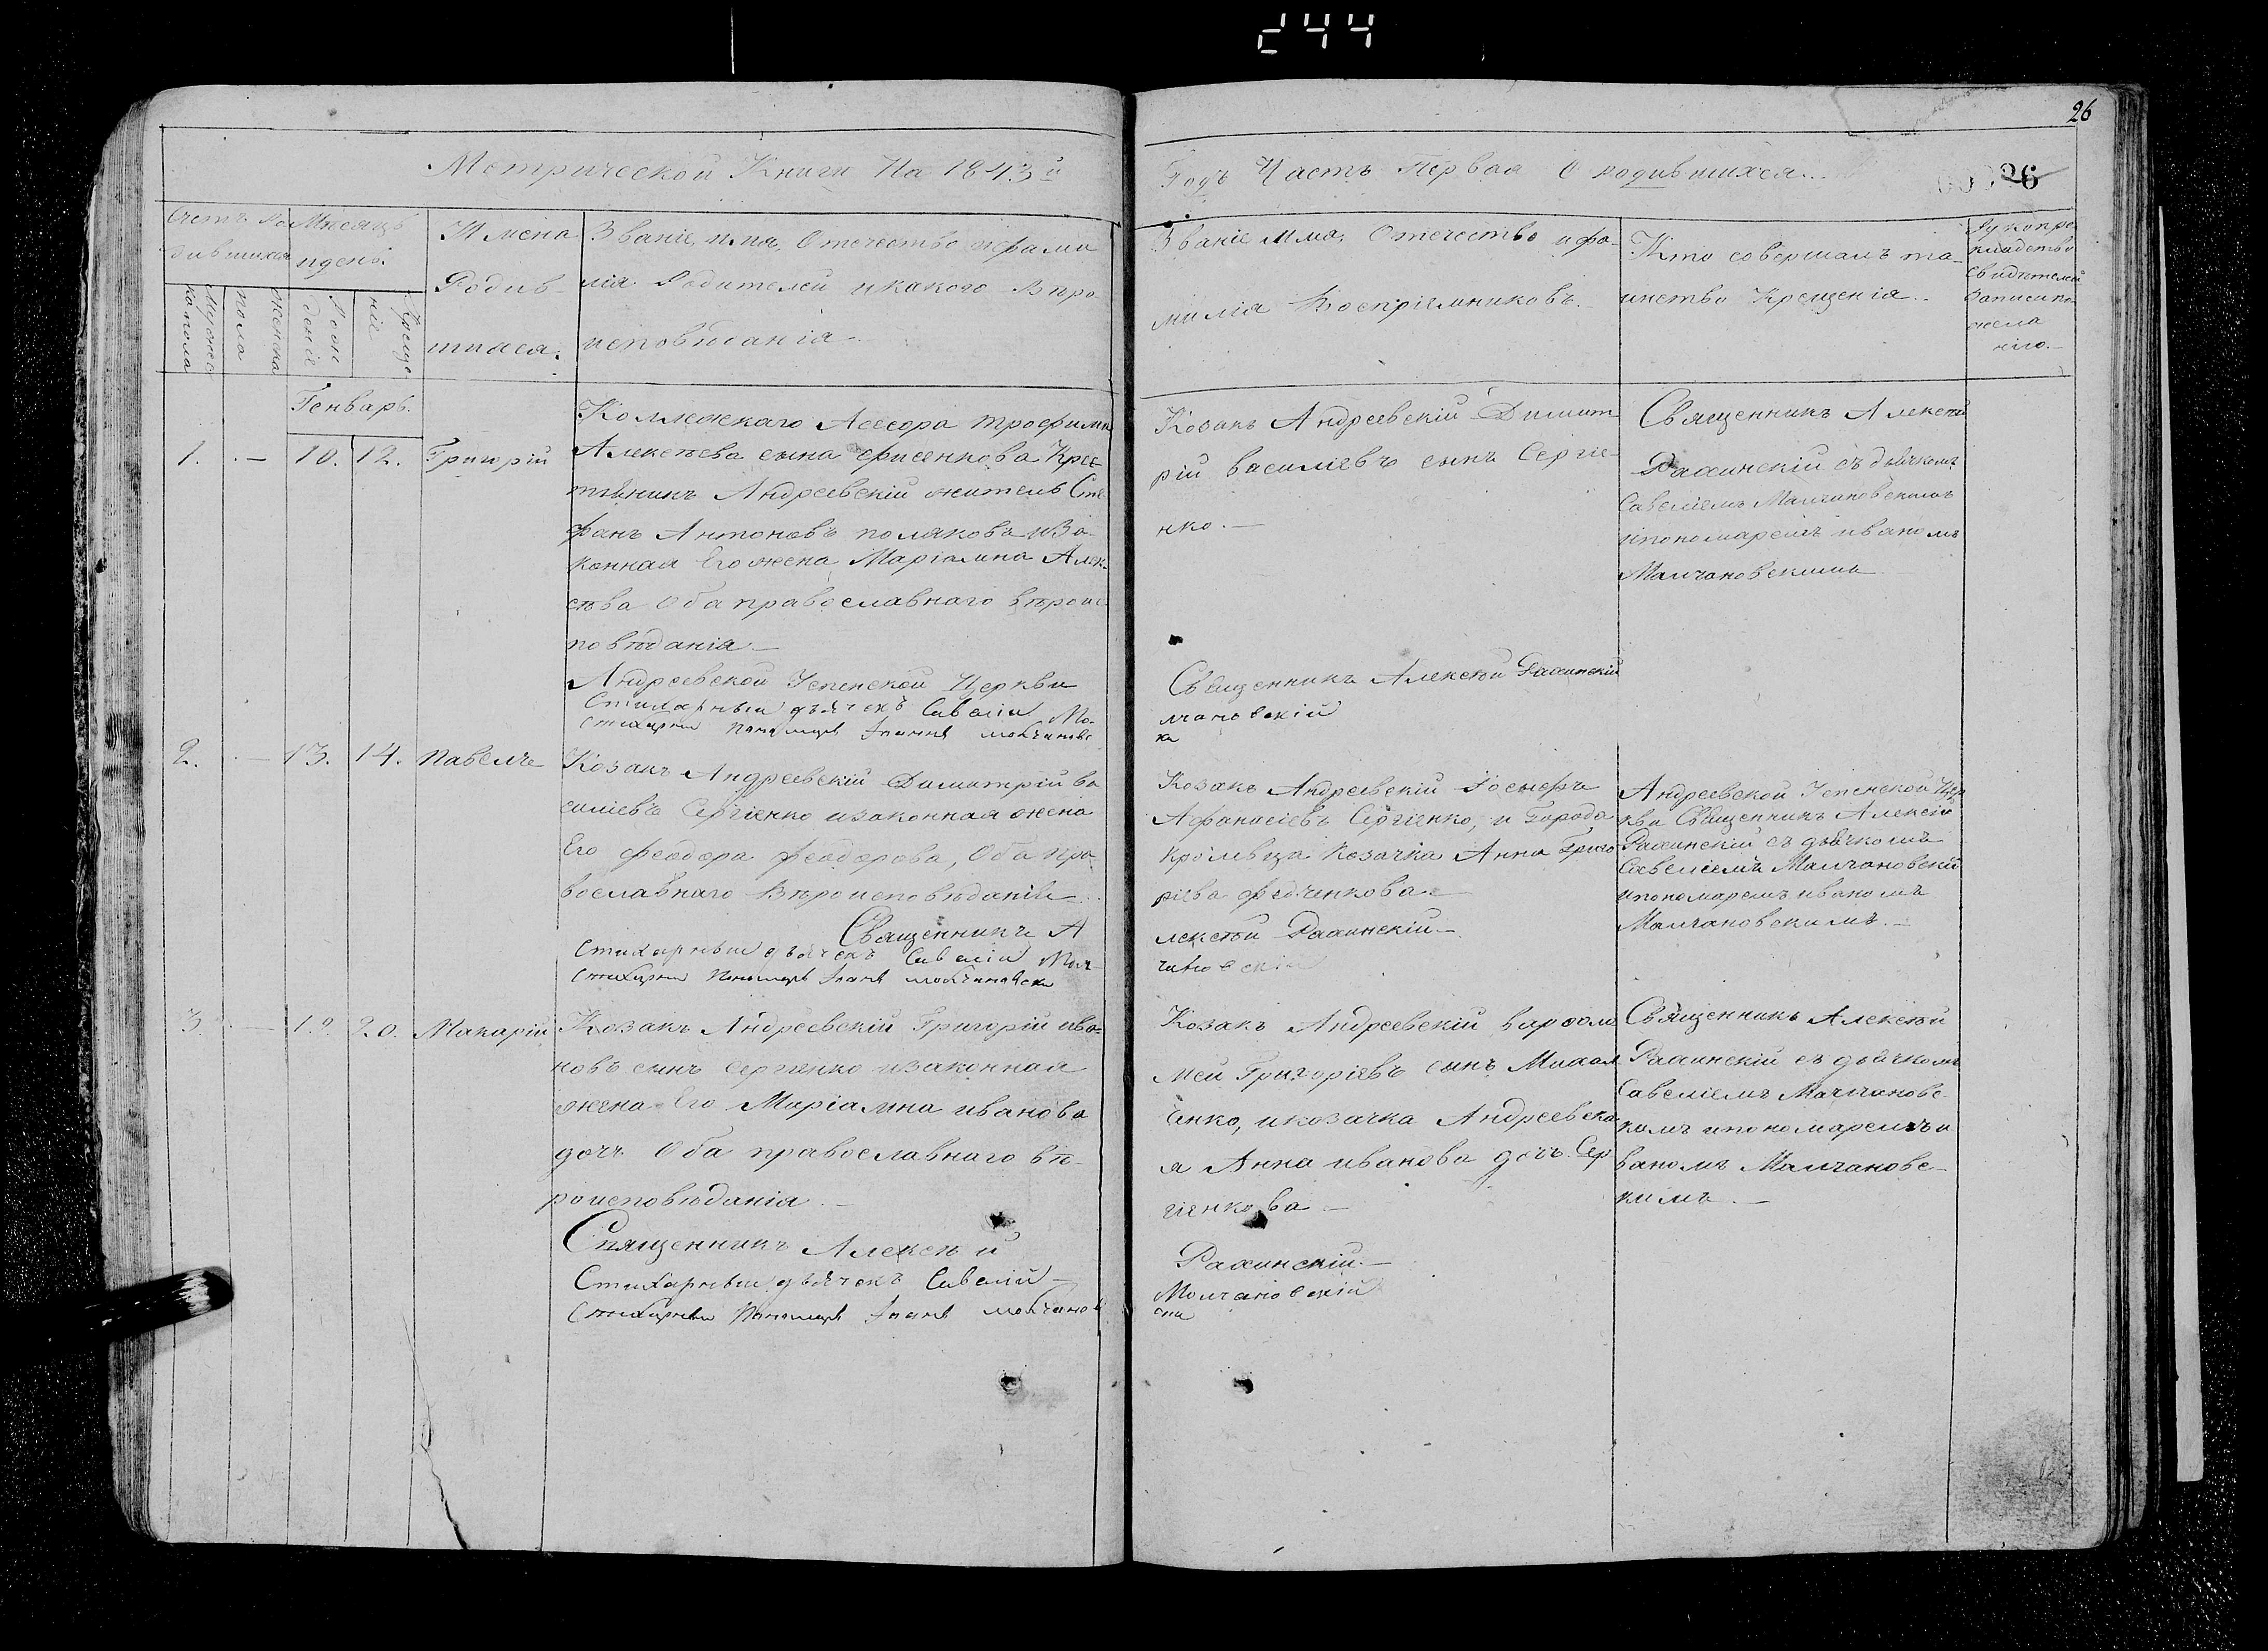 244
26
Метрической Книги На 1843й
Годъ Часть Первая О родившихся.
26
Счетъ Ро
дившихся
Мѣсяцъ
и день.
Имена
Родив
шихся.
Званіе, имя, Отечество и фами
лія Родителей и какого Вѣро
исповѣданія
Мужес
ка пола
женска
пола
Рож
деніе
Креще
ніе
Званіе Имя, Отечество и фа-
милія Воспріемниковъ.
Кто совершалъ та-
инство Крещенія.
Рукопри
кладство
Свидѣтелей
Записи по
жела
нію.
Генварь.
1. — 10. 12. Григорій
Коллежскаго Ассесора Трофима
Алексѣева сына Фисенкова Крес
тянинъ Андреевскій житель Сте
фанъ Антоновъ поляковъ иЗа
конная Его жена Маріамна Алек
сѣва Оба православнаго вѣроис
повѣданія —
Андреевской Успенской Церкви
Стихарный дьячекъ Савелій Мо-
Стихарный Пономарь Іоаннъ молчановс
Козакъ Андреевскій Димит
рій василіевъ сынъ Сергіе
нко. —
Священникъ Алексѣй Рахинскій
лчановскій
ки
Священникъ Алексѣй
Рахинскій съ дьячкомъ
Савеліемъ Малчановскимъ
ипономаремъ иваномъ
Малчановскимъ
2. — 13. 14. Павелъ
Козакъ Андреевскій Димитрій ва
силіевъ Сергіенко изаконная жена
Его Феодора Феодорова, Оба пра
вославнаго Вѣроисповѣданія
Священникъ А
Стихарный дьячекъ Савелій Мол-
Стихарный Пономарь Іоаннъ молчановски
Козакъ Андреевскій Іосифъ
Афанасіевъ Сергіенко, и Города
Кролевца Козачка Анна Григо
ріева Федченкова
лексѣй Рахинскій —
чановскій
Андреевской Успенской Цер
кви Священникъ Алексѣй
Рахинскій съ дьячкомъ
Савеліемъ Малчановскій
ипономаремъ иваномъ
Малчановскимъ. —
3. — 19. 20. Макарій
Козакъ Андреевскій Григорій ива-
новъ сынъ Сергіенко изаконная
жена Его Маріамна иванова
дочъ Оба православнаго вѣ-
роисповѣданія —
Священникъ Алексѣй
Стихарный дьячекъ Савелій —
Стихарный Пономарь Іоаннъ молчанов
Козакъ Андреевскій варфоло
мей Григоріевъ сынъ Михал
енко, икозачка Андреевска
я Анна иванова дочъ Сер
гіенкова —
Рахинскій. —
Молчановскій
ски
Священникъ Алексѣй
Рахинскій съ дьячкомъ
Савеліемъ Малчановс
кимъ ипономаремъ и
ваномъ Малчановс-
кимъ. —